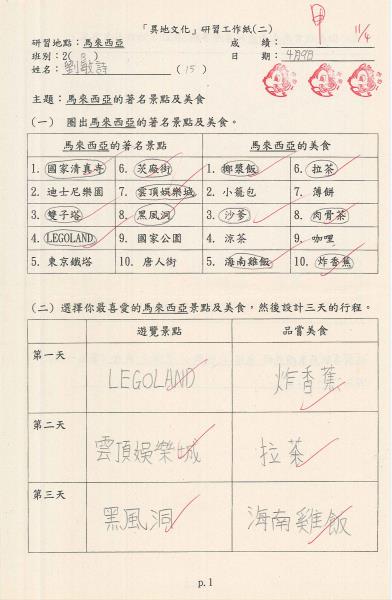 「異地文化」研習工作紙(二)
甲
11/4
研習地點：馬來西亞 成績：
班別：2( ) 日期：4月9日
姓名：劉敏詩 (15)
主題：馬來西亞的著名景點及美食
(一) 圈出馬來西亞的著名景點及美食。
馬來西亞的著名景點 馬來西亞的美食
1. 國家清真寺 6. 茨廠街 1. 椰漿飯 6. 拉茶
2. 迪士尼樂園 7. 雲頂娛樂城 2. 小籠包 7. 薄餅
3. 雙子塔 8. 黑風洞 3. 沙爹 8. 肉骨茶
4. LEGOLAND 9. 國家公園 4. 涼茶 9. 咖哩
5. 東京鐵塔 10. 唐人街 5. 海南雞飯 10. 炸香蕉
(二) 選擇你最喜愛的馬來西亞景點及美食，然後設計三天的行程。
遊覽景點 品嘗美食
第一天 LEGOLAND 炸香蕉
第二天 雲頂娛樂城 拉茶
第三天 黑風洞 海南雞飯
p.1